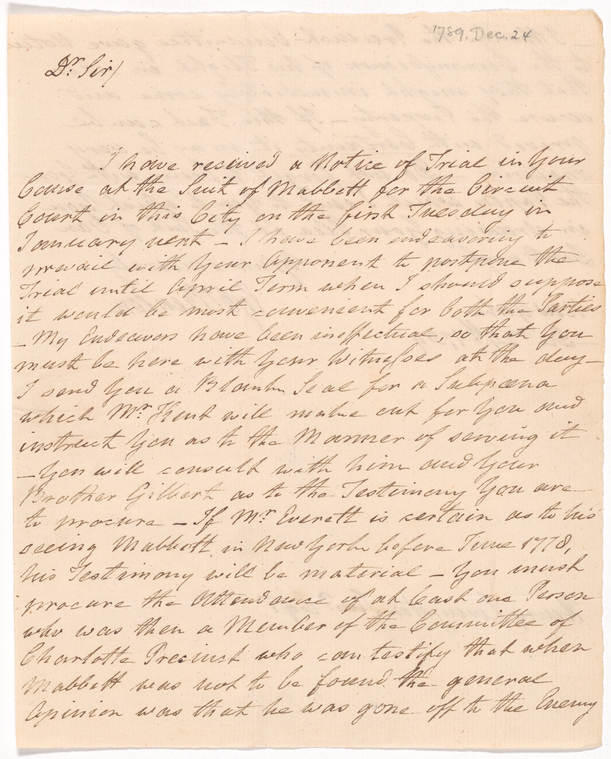 1789, Dec. 24
Dr. Sir/
I have received a Notice of Trial in Your
Cause at the Suit of Mabbett for the Circuit
Court in this City on the first Tuesday in
January next – I have been endeavoring to
prevail with Your Opponent to postpone the
Trial until April Term when I should suppose
it would be most convenient for both the Parties
– My Endeavors have been ineffectual, so that You
must be here with Your Witnesses at the day –
I send You a Blank Seal for a Subpœna
which Mr. Kent will make out for You and
instruct You as to the Manner of serving it
– You will consult with him and Your
Brother Gilbert as to the Testimony You are
to procure – If Mr. Everett is certain as to his
seeing Mabbett in New York before June 1778,
his Testimony will be material – You must
procure the Attendance of at least one Person
who was then a Member of the Committee of
Charlotte Precinct who can testify that when
Mabbett was not to be found the general
Opinion was that he was gone off to the Enemy